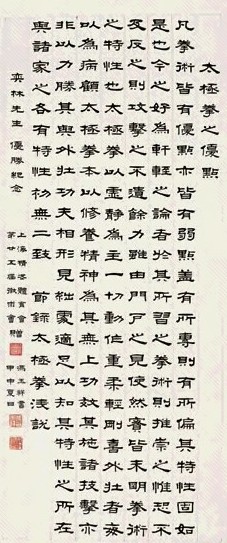 太極拳之優點
凡拳術皆有優點亦皆有弱點蓋有所專則有所偏其特性固如
是也今之好為軒輊之論者於其所善之拳術則推崇之惟恐不
及反之則攻擊之不遺餘力雖由門戶之見使然實皆未明拳術
之特性也太極拳以虛靜為主一切動作重柔輕剛喜外壯者每
以為病顧太極拳本以修養精神為其無上功效其施諸技擊亦
非以力勝其與外壯功夫相形見絀處適足以知其特性之所在
與諸家之各有特性初無二致 節錄太極拳淺說
弈林先生 優勝紀念
上海精武體育會
第廿五屆徵術會贈
玉祥書
甲申夏日